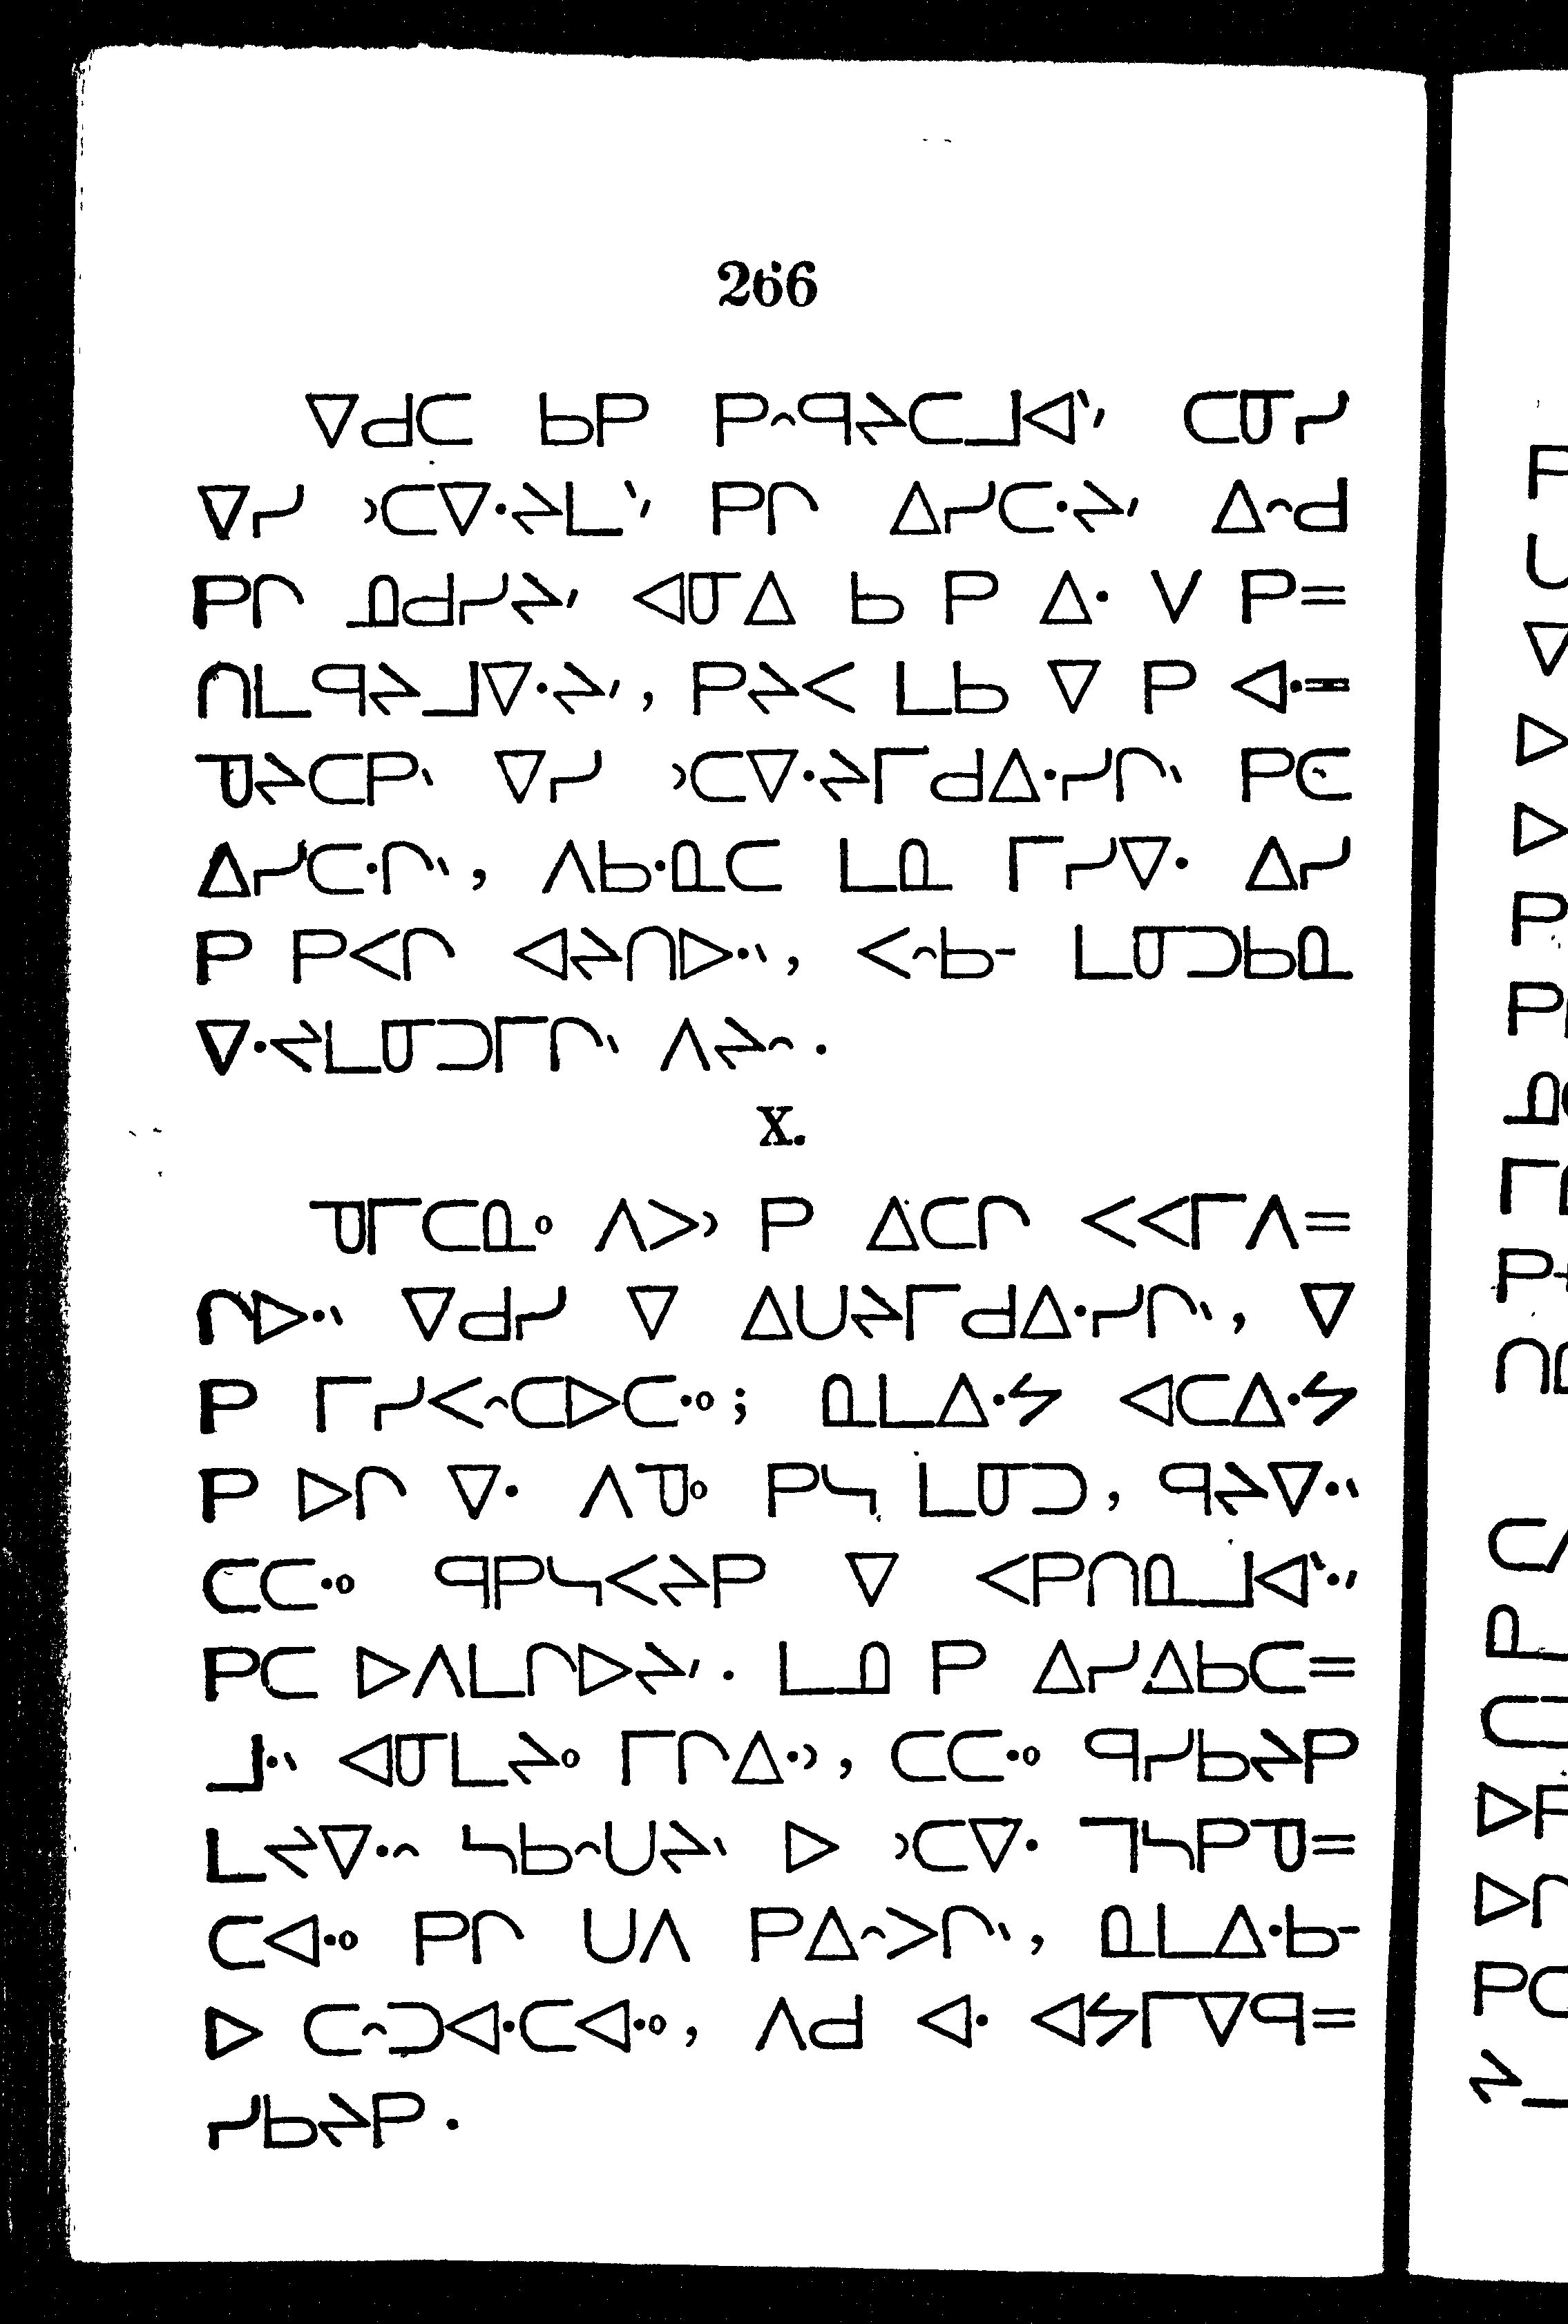 266
ᐁᑯᑕ ᑲᑭ ᑭᐢᑫᔨᑕᒧᐊᐠᐟ ᑕᓂᓯ
ᐁᓯ ᐣᑕᐁᐧᔨᒪᐠᐟ ᑭᒋ ᐃᓯᑕᐧᔨᐟ ᐃᐢᑯ
ᑭᒋ ᓄᑯᓯᔨᐟ ᐊᓂᐃ ᑲ ᑭ ᐃᐧ ᐯ ᑭ=
ᑎᒪᑫᔨᒧᐁᐧᔨᐟ, ᑭᔨᐸ ᒪᑲ ᐁ ᑭ ᐊᐧ=
ᓀᔨᑕᑭᐠ ᐁᓯ ᐣᑕᐁᐧᔨᒥᑯᐃᐧᓯᒋᐠ ᑭᑕ
ᐃᓯᑕᐧᒋᐠ, ᐱᑲᐧᓇᑕ ᒪᓇ ᒥᓯᐁᐧ ᐃᓯ
ᑭ ᑭᐸᒋ ᐊᔨᑎᐅᐧᐠ, ᐸᐢᑲᐨ ᒪᓂᑐᑲᓇ
ᐁᐧᔪᒪᓂᑐᒥᒋᐠ ᐱᔨᐢ .
X.
ᓀᒥᑕᓇᐤ ᐱᐳᐣ ᑭ ᐃᑕᒋ ᐸᐸᒥᐱ=
ᒋᐅᐧᐠ ᐁᑯᓯ ᐁ ᐃᑌᔨᒥᑯᐃᐧᓯᒋᐠ, ᐁ
ᑭ ᒥᓯᐸᐢᑕᐅᑕᐧᐤ; ᓇᒪᐃᐧᔭ ᐊᑕᐃᐧᔭ
ᑭ ᐅᒋ ᐁᐧ ᐱᓀᐤ ᑭᓭ ᒪᓂᑐ, ᑫᔨᐁᐧᐠ
ᑕᑕᐧᐤ ᑫᑭᓭᐸᔨᑭ ᐁ ᐸᑭᑎᓇᒧᐊᐠᐧᐟ
ᑭᑕ ᐅᐱᒪᒋᐅᔨᐟ . ᒪᓄ ᑭ ᐃᓯᐃᑲᑕ=
ᒧᐧᐠ ᐊᓂᒪᔨᐤ ᒥᒋᐃᐧᐣ, ᑕᑕᐧᐤ ᑫᓯᑲᔨᑭ
ᒪᔪᐁᐧᐢ ᓭᑲᐢᑌᔨᐠ ᐅ ᐣᑕᐁᐧ ᒣᓭᑭᓀ=
ᑕᐊᐧᐤ ᑭᒋ ᑌᐱ ᑭᐃᐢᐳᒋᐠ, ᓇᒪᐃᐧᑲᐨ
ᐅ ᑕᐢᑐᐊᐧᑕᐊᐧᐤ, ᐱᑯ ᐊᐧ ᐊᔭᒥᐁᑫ=
ᓯᑲᔨᑭ .